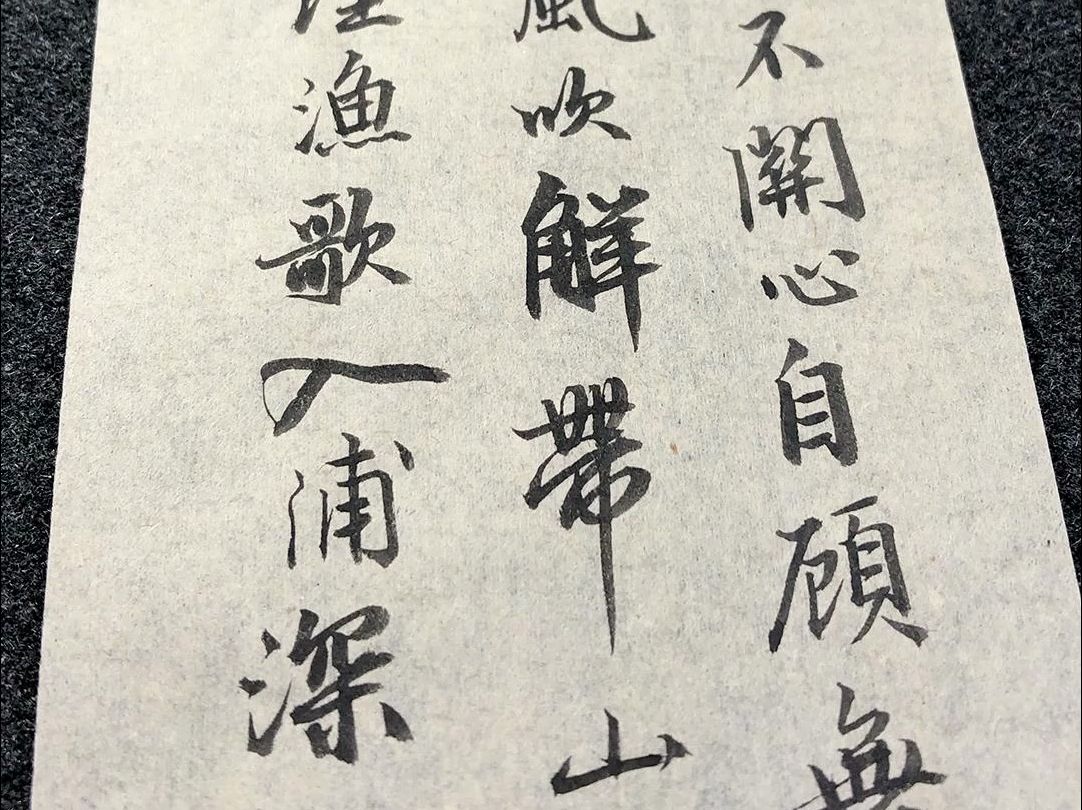 不關心自顧無
風吹解帶山
理漁歌入浦深